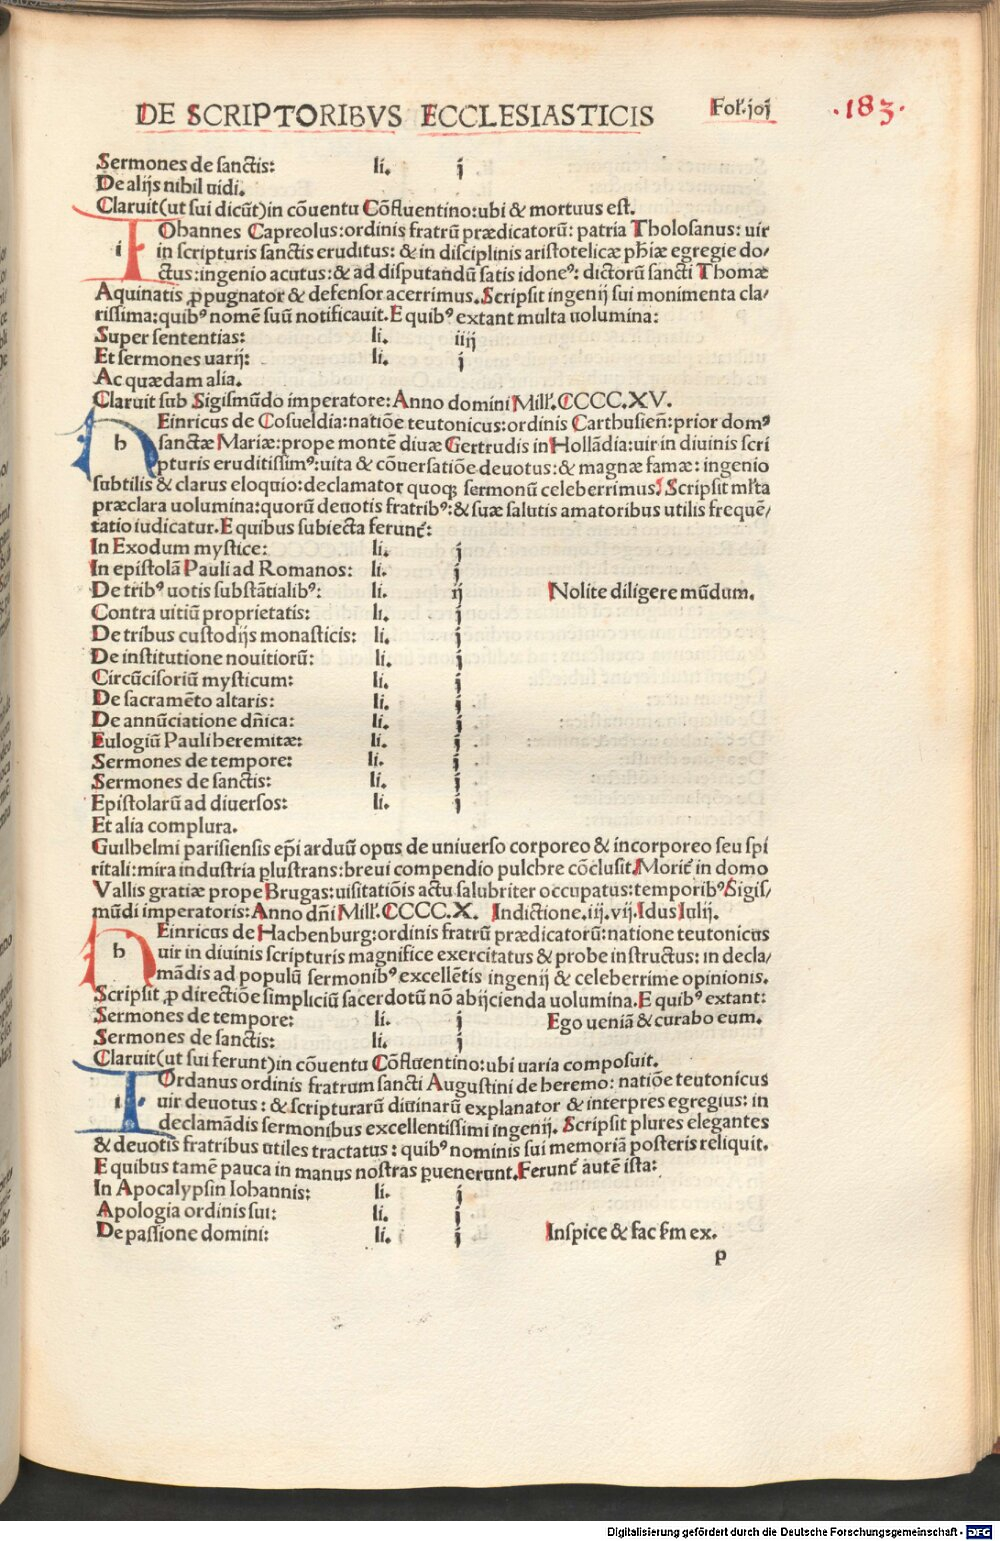 DE SCRIPTORIBVS ECCLESIASTICIS Fol.joj .183.
Sermones de sanctis: li. j
De alijs nihil uidi.
Claruit(ut sui dicūt)in cōuentu Cōfluentino:ubi & mortuus est.
IOhannes Capreolus:ordinis fratrū prædicatorū: patria Tholosanus: uir
i in scripturis sanctis eruditus: & in disciplinis aristotelicæ phiæ egregie do/
ctus:ingenio acutus:& ad disputandū satis idoneꝰ: dictorū sancti Thomæ
Aquinatis ꝓpugnator & defensor acerrimus.Scripsit ingenij sui monimenta cla/
rissima:quibꝰ nomē suū notificauit.E quibꝰ extant multa uolumina:
Super sententias: li. iiij
Et sermones uarij: li. j
Ac quædam alia.
Claruit sub Sigismūdo imperatore: Anno domini Mill'.CCCC.XV.
HEinricus de Cosueldia:natiōe teutonicus:ordinis Carthusień:prior domꝰ
h sanctæ Mariæ:prope montē diuæ Gertrudis in Hollādia:uir in diuinis scri
pturis eruditissimꝰ:uita & cōuersatiōe deuotus:& magnæ famæ: ingenio
subtilis & clarus eloquio:declamator quoqꝫ sermonū celeberrimus: Scripsit ml'ta
præclara uolumina:quorū deuotis fratribꝰ:& suæ salutis amatoribus utilis frequē/
tatio iudicatur.E quibus subiecta ferunt̄:
In Exodum mystice: li. j
In epistolā Pauli ad Romanos: li. j
De tribꝰ uotis substātialibꝰ: li. ij Nolite diligere mūdum.
Contra uitiū proprietatis: li. j
De tribus custodijs monasticis: li. j
De institutione nouitiorū: li. j
Circūcisoriū mysticum: li. j
De sacramēto altaris: li. j
De annūciatione dñica: li. j
Eulogiū Pauli heremitæ: li. j
Sermones de tempore: li. j
Sermones de sanctis: li. j
Epistolarū ad diuersos: li. j
Et alia complura.
Guilhelmi parisiensis ep̄i arduū opus de uniuerso corporeo & incorporeo seu spi
ritali:mira industria plustrans:breui compendio pulchre cōclusit.Morit̄ in domo
Vallis gratiæ prope Brugas:uisitatiōis actu salubriter occupatus:temporibꝰ Sigis/
mūdi imperatoris: Anno dñi Mill'.CCCC.X. Indictione.iij.vij.Idus Iulij.
HEinricus de Hachenburg:ordinis fratrū prædicatorū:natione teutonicus
h uir in diuinis scripturis magnifice exercitatus & probe instructus: in decla/
mādis ad populū sermonibꝰ excellētis ingenij & celeberrime opinionis.
Scripsit ꝓ directiōe simpliciū sacerdotū nō abijcienda uolumina.E quibꝰ extant:
Sermones de tempore: li. j Ego ueniā & curabo eum.
Sermones de sanctis: li. j
Claruit(ut sui ferunt)in cōuentu Cōfluentino:ubi uaria composuit.
IOrdanus ordinis fratrum sancti Augustini de heremo: natiōe teutonicus
i uir deuotus: & scripturarū diuinarū explanator & interpres egregius: in
declamādis sermonibus excellentissimi ingenij. Scripsit plures elegantes
& deuotis fratribus utiles tractatus: quibꝰ nominis sui memoriā posteris reliquit.
E quibus tamē pauca in manus nostras ꝑuenerunt.Ferunt̄ autē ista:
In Apocalypsin Iohannis: li. j
Apologia ordinis sui: li. j
De passione domini: li. j Inspice & fac sm̄ ex.
p
Digitalisierung gefördert durch die Deutsche Forschungsgemeinschaft - DFG